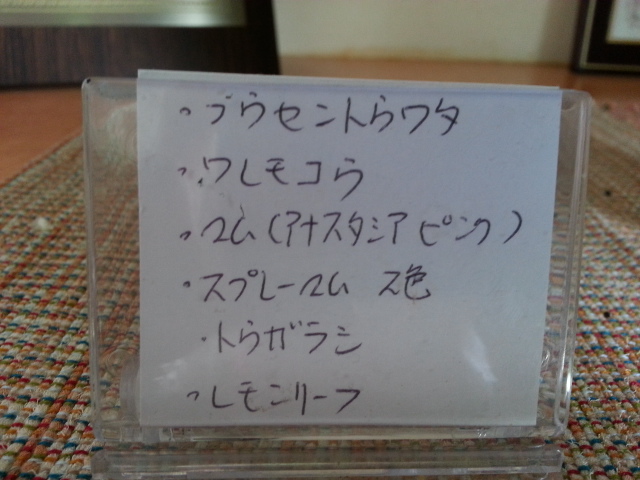 ・フウセントウワタ
・ワレモコウ
・マム(アナスタシア ピンク)
・スプレーマム 2色
・トウガラシ
・レモンリーフ